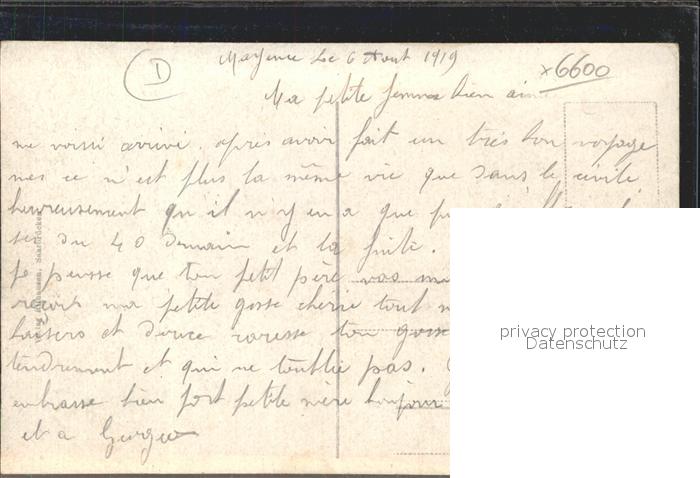 D
Mayence Le 6 Aout 1919
x6600
Ma petite femme bien aim
me voissi arrivé. apres avoir fait un très bon voyage
mes ce n'est plus la même vie que dans le civile
heureusement qu'il n'y en a que
du 40 demain et la fuite.
Je pensse que ton petit père vas
reçois ma petite gosse cherie tout
baisers et douce caresse ton gosse
tendrement et qui ne toublie pas.
embrasse bien fort petite mère bonjour
et a
Saarbrücken
privacy protection
Datenschutz